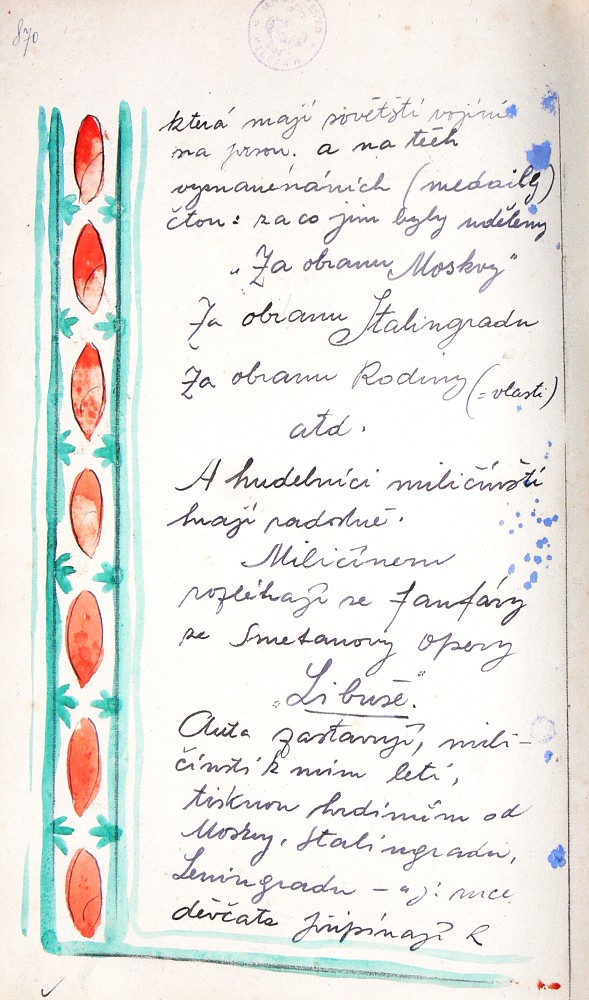 870
která mají sovětští vojíni
na prsou. a na těch
vyznamenáních (medaily)
čtou: za co jim byly uděleny
„Za obranu Moskvy"
Za obranu Stalingradu
Za obranu Rodiny (= vlasti)
atd.
A hudebníci miličínští
hrají radostně.
Miličínem
rozléhají se fanfáry
ze Smetanovy opery
„Libuše".
Auta zastavují, mili-
čínští k nim letí,
tisknou hrdinům od
Moskvy, Stalingradu,
Leningradu – ruce
děvčata připínají k